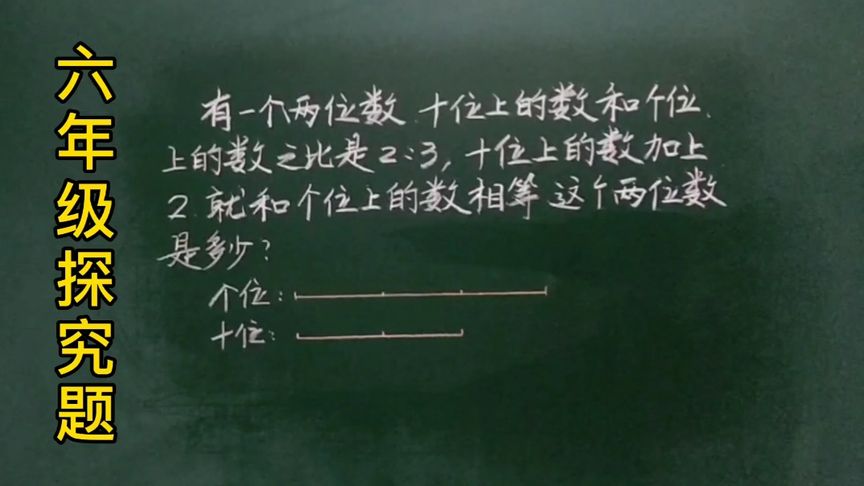 六年级探究题
有一个两位数.十位上的数和个位
上的数之比是2:3,十位上的数加上
2.就和个位上的数相等.这个两位数
是多少?
个位:
十位: